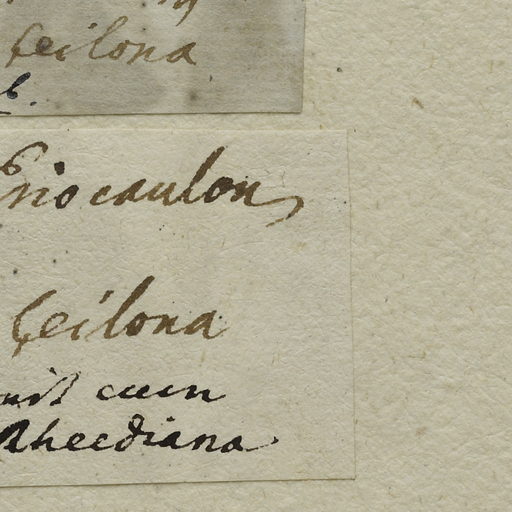 Ceilona
Eriocaulon
Ceilona
cum
Rheediana